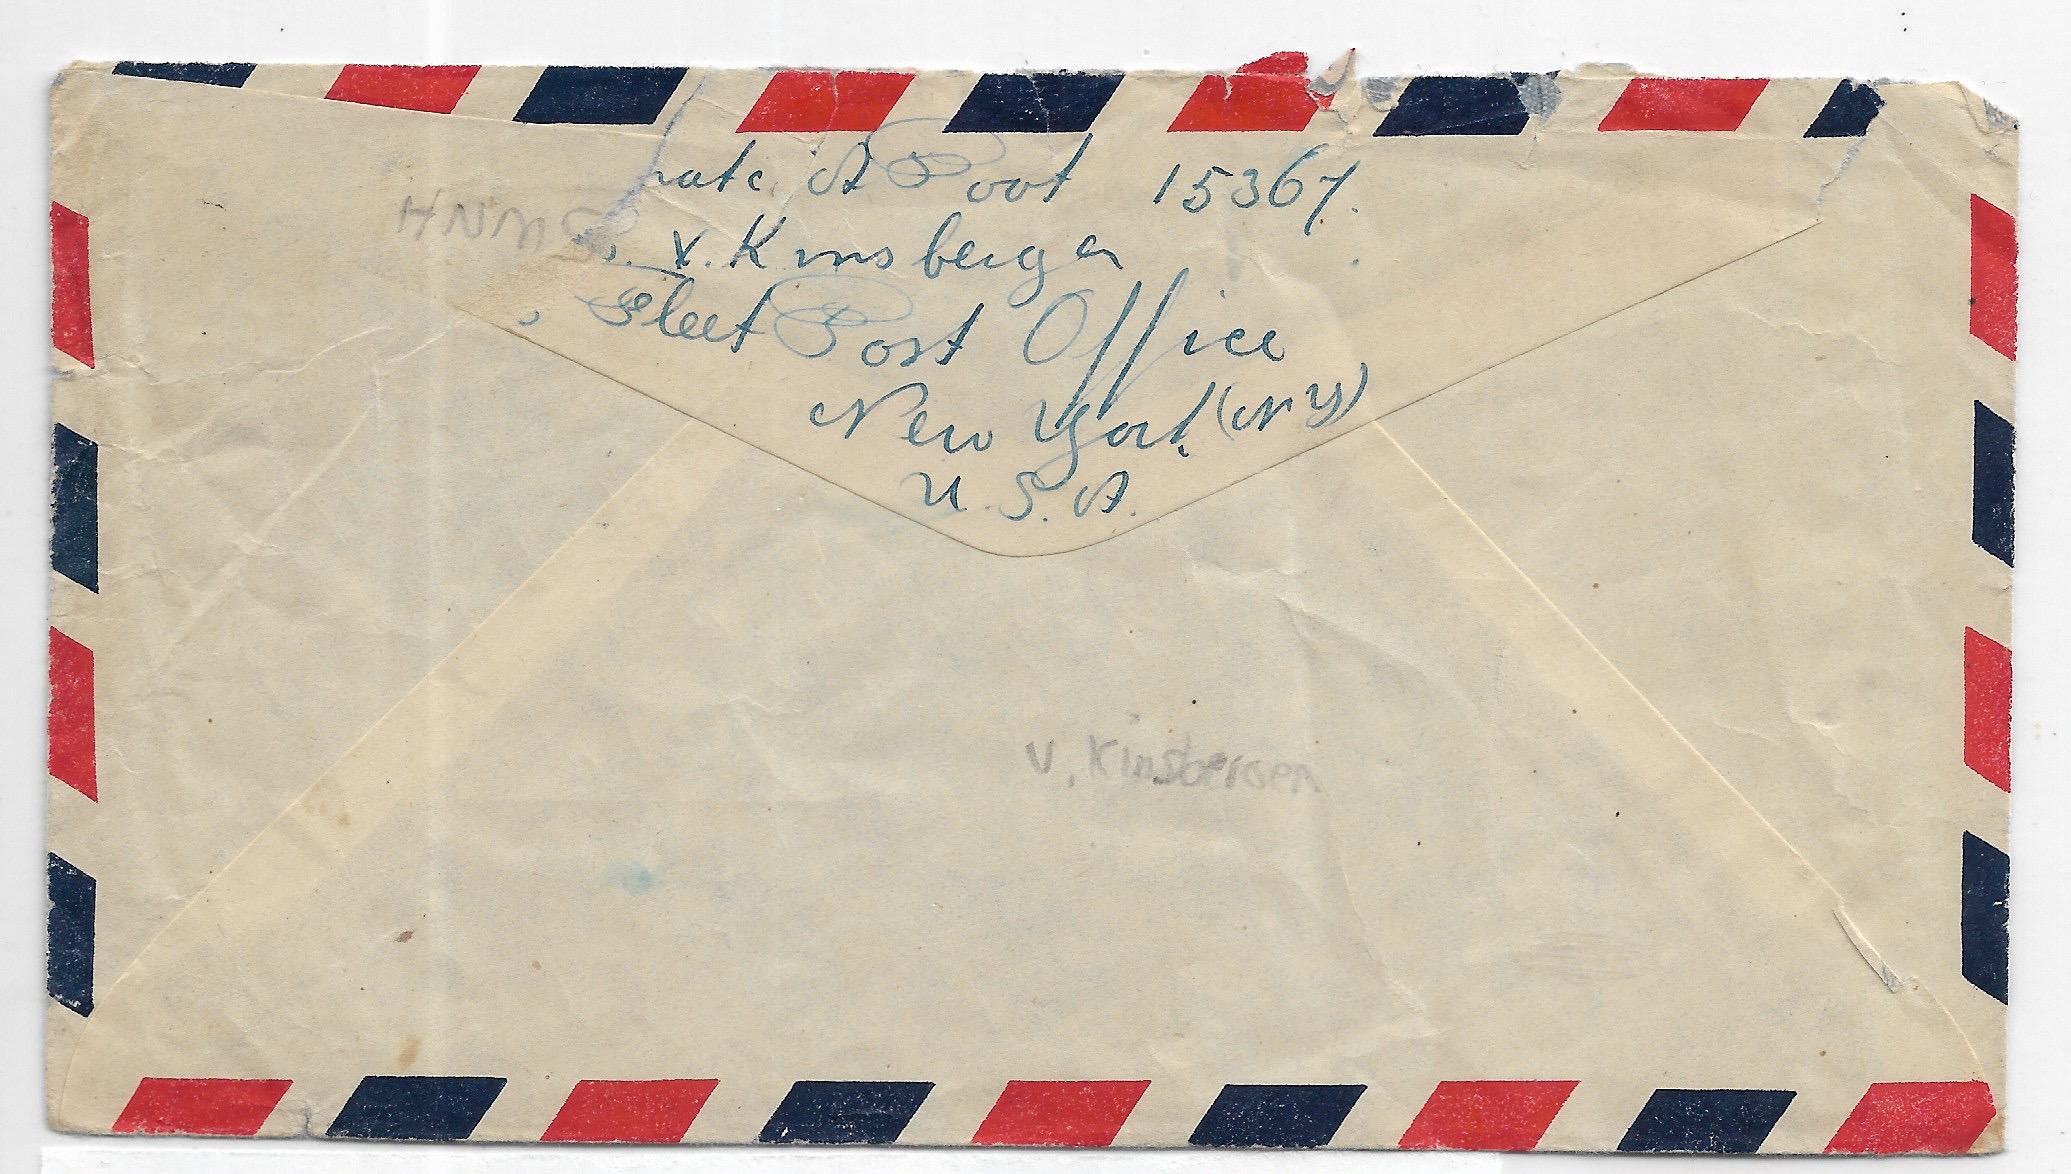 A Poot 15367.
v. Kinsbergen
Fleet Post Office
New York (N Y)
U. S. A.
HNMS
v. Kinsbergen